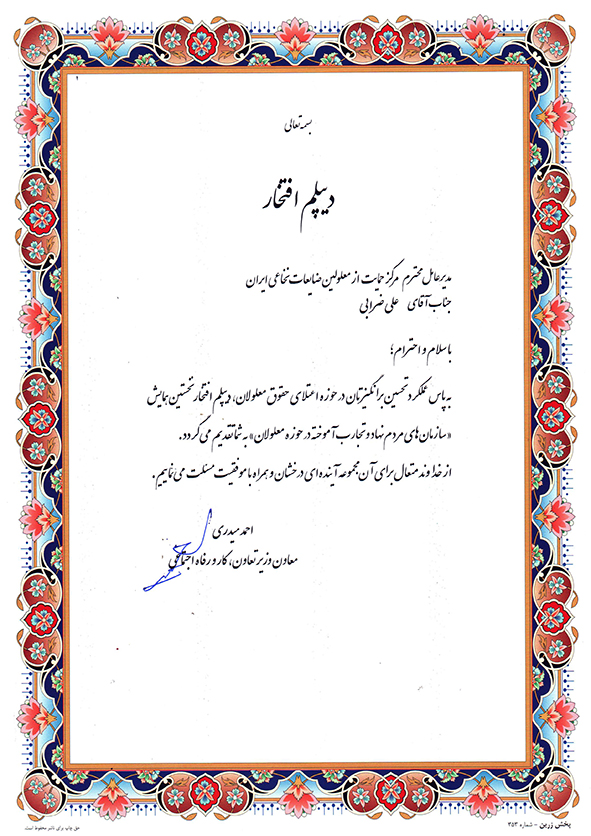 بسمه تعالی
دیپلم افتخار
مدیر عامل محترم مرکز حمایت از معلولین ضایعات نخاعی ایران
جناب آقای علی ضرابی
با سلام و احترام؛
به پاس عملکرد تحسین برانگیزتان در حوزه اعتلای حقوق معلولان، دیپلم افتخار نخستین همایش
«سازمان های مردم نهاد و تجارب آموخته در حوزه معلولان» به شما تقدیم می گردد.
از خداوند متعال برای آن مجموعه آینده ای درخشان و همراه با موفقیت مسئلت می نماییم.
احمد میدری
معاون وزیر تعاون، کار و رفاه اجتماعی
پخش زرین - شماره ۳۵۳
حق چاپ برای ناشر محفوظ است.